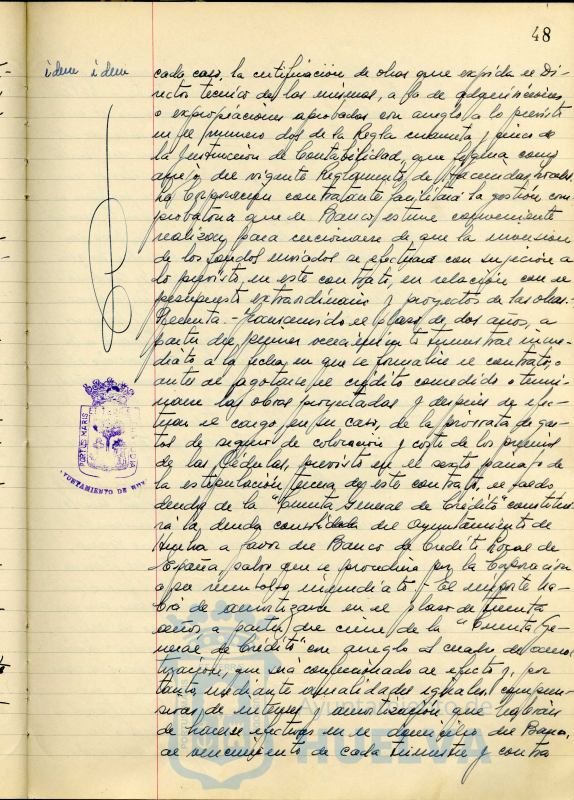 48
idem idem
cada caso, la certificación de obras que expida el Di-
rector técnico de las mismas, a fin de adquisiciones
o expropiaciones aprobadas con arreglo a lo previsto
en el número dos de la Regla cuarenta y cinco de
la Instrucción de Contabilidad, que figura como
del vigente Reglamento de Haciendas locales
La Corporación contratante facilitará la gestión com-
probatoria que el Banco estime conveniente
realizar para cerciorarse de que la inversión
de los fondos enviados se efectuará con sujeción a
lo previsto en este contrato, en relación con el
presupuesto extraordinario y proyectos de las obras.-
.- Transcurrido el plazo de dos años, a
partir del primer vencimiento trimestral inme-
diato a la fecha en que se formalice el contrato, o
antes si agotase el crédito concedido o termi-
nare las obras proyectadas y después de efec-
tuar el cargo, en su caso, de la prorrata de gas-
tos de seguro de colocación y coste de los premios
de las Cédulas, previsto en el sexto párrafo de
la estipulación tercera de este contrato, el saldo
deudor de la "Cuenta General de Crédito" constitui-
rá la deuda consolidada del Ayuntamiento de
Huelva a favor del Banco de Crédito Local de
España salvo que se procediera por la Corporación
a su reembolso inmediato.- El importe ha-
brá de amortizarse en el plazo de treinta
años, a partir del cierre de la "Cuenta Ge-
neral de Crédito" con arreglo al cuadro de amor-
tización, que será confeccionado al efecto y, por
tanto, mediante anualidades iguales, compren-
sivas de interés y amortización, que habrán
de hacerse efectivas en el domicilio del Banco,
al vencimiento de cada trimestre y contra
PORTUS MARIS
AYUNTAMIENTO DE HUE
Ayuntamiento de
HUELVA